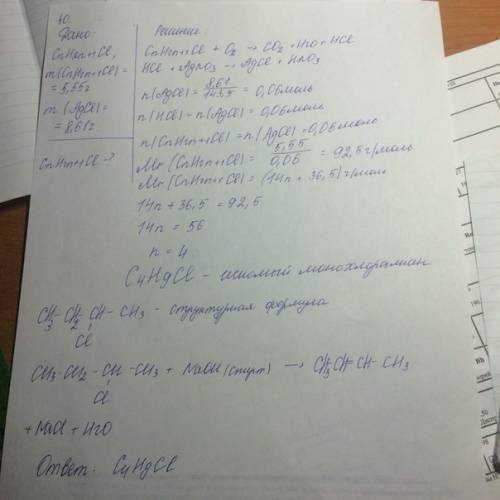 40.
Дано:
CnH2n+1Cl,
m(CnH2n+1Cl)=
= 5,55г
m(AgCl)=
= 8,61г
CnH2n+1Cl -?
Решение:
CnH2n+1Cl + O2 → CO2 + H2O + HCl
HCl + AgNO3 → AgCl + HNO3
n(AgCl) = 8,61/143,5 = 0,06моль
n(HCl) - n(AgCl) = 0,06моль
n(CnH2n+1Cl) = n(AgCl) = 0,06моль
Mr(CnH2n+1Cl) = 5,55/0,06 = 92,5 г/моль
Mr(CnH2n+1Cl) = (14n + 36,5) г/моль
14n + 36,5 = 92,5
14n = 56
n = 4
C4H9Cl - искомый монохлоралкан
CH3 - CH2 - CH - CH3 - структурная формула
Cl
CH3 - CH2 - CH - CH3 + NaOH (спирт) → CH3CH=CH - CH3
Cl
+ NaCl + H2O
Ответ: C4H9Cl